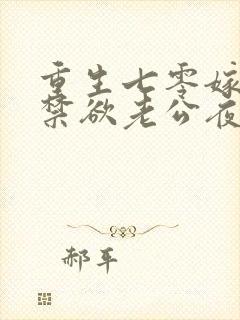 重生七零嫁
禁欲老公夜
郝平